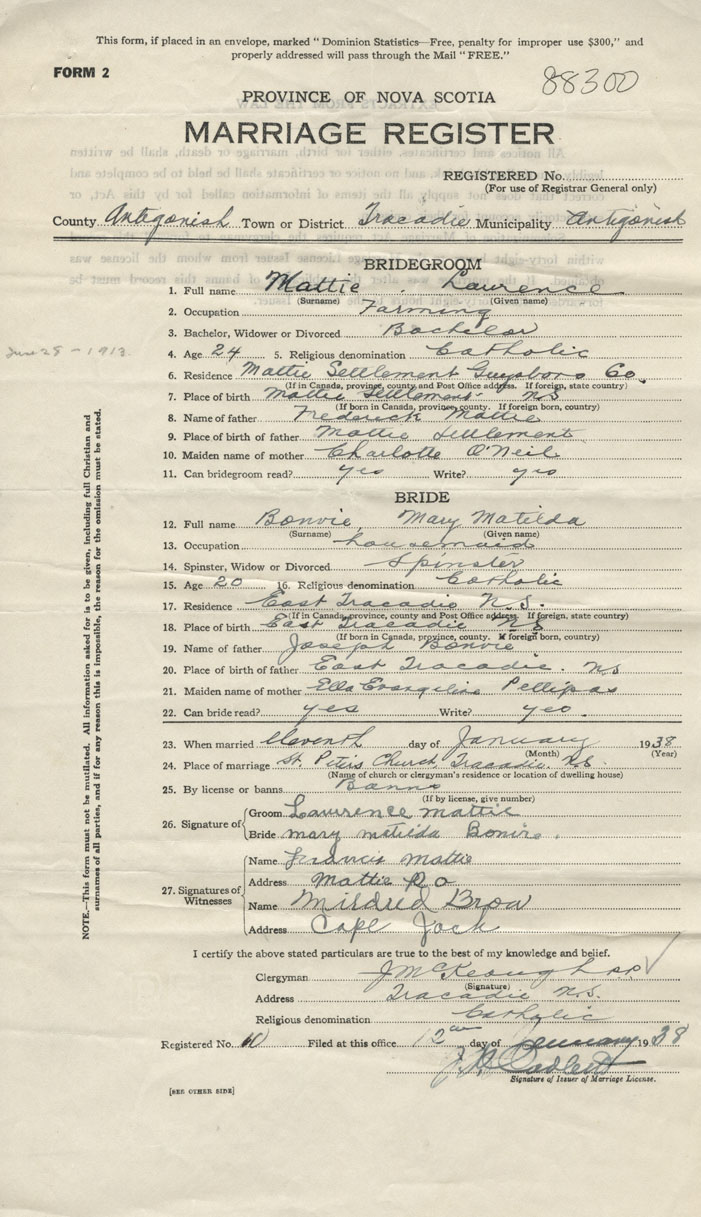 This form, if placed in an envelope, marked "Dominion Statistics—Free, penalty for improper use $300," and
properly addressed will pass through the Mail "FREE."
FORM 2
88300
PROVINCE OF NOVA SCOTIA
MARRIAGE REGISTER
REGISTERED No.
(For use of Registrar General only)
County Antigonish Town or District Tracadie Municipality Antigonish
BRIDEGROOM
1. Full name Mattie Lawrence
(Surname) (Given name)
2. Occupation Farming
3. Bachelor, Widower or Divorced Bachelor
June 25 - 1913
4. Age 24 5. Religious denomination Catholic
6. Residence Mattie Settlement Guysboro Co.
(If in Canada, province, county and Post Office address. If foreign, state country)
7. Place of birth Mattie Settlement NS
(If born in Canada, province, county. If foreign born, country)
8. Name of father Frederick Mattie
9. Place of birth of father Mattie Settlement
10. Maiden name of mother Charlotte O'Neil
11. Can bridegroom read? yes Write? yes
BRIDE
12. Full name Bonvie, Mary Matilda
(Surname) (Given name)
13. Occupation housemaid
14. Spinster, Widow or Divorced Spinster
15. Age 20 16. Religious denomination Catholic
17. Residence East Tracadie N.S.
(If in Canada, province, county and Post Office address. If foreign, state country)
18. Place of birth East Tracadie NS
(If born in Canada, province, county. If foreign born, country)
19. Name of father Joseph Bonvie
20. Place of birth of father East Tracadie. NS
21. Maiden name of mother Ella Evangeline Pettipas
22. Can bride read? yes Write? yes.
23. When married eleventh day of January 1938
(Month) (Year)
24. Place of marriage St. Peters Church, Tracadie. N.S.
(Name of church or clergyman's residence or location of dwelling house)
25. By license or banns Banns
(If by license, give number)
26. Signature of Groom Lawrence mattie
Bride mary matilda Bonvie.
27. Signatures of Witnesses
Name Francis Mattie
Address Mattie P.O
Name Mildred Brow
Address Cape Jack
I certify the above stated particulars are true to the best of my knowledge and belief.
Clergyman J McKeough P.P.
(Signature)
Address Tracadie N.S.
Religious denomination Catholic
Registered No. 10 Filed at this office 12th day of January 1938
Signature of Issuer of Marriage License.
[SEE OTHER SIDE]
NOTE.—This form must not be mutilated. All information asked for is to be given, including full Christian and
surnames of all parties, and if for any reason this is impossible, the reason for the omission must be stated.